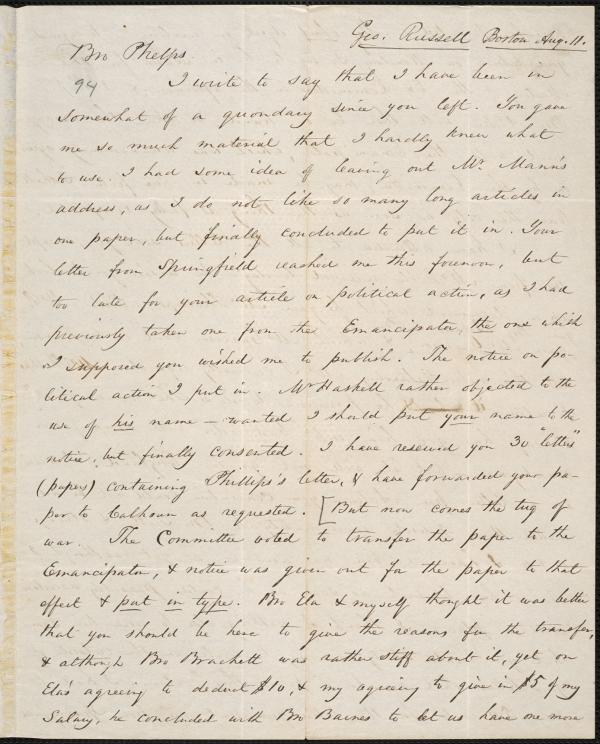 Geo. Russell Boston Aug. 11.
Bro Phelps
94
I write to say that I have been in
somewhat of a quondary since you left. You gave
me so much material that I hardly knew what
to use. I had some idea of leaving out Mr. Mann's
address, as I do not like so many long articles in
one paper, but finally concluded to put it in. Your
letter from Springfield reached me this forenoon, but
too late for your article on political action, as I had
previously taken one from the Emancipator, the one which
I supposed you wished me to publish. The notice on po-
litical action I put in. Mr Haskell rather objected to the
use of his name — wanted I should put your name to the
notice, but finally consented. I have reserved you 30 "letters"
(papers) containing Phillips's letter, & have forwarded your pa-
per to Calhoun as requested. [But now comes the tug of
war. The Committee voted to transfer the paper to the
Emancipator, & notice was given out for the paper to that
effect & put in type. Bro Ela & myself thought it was better
that you should be here to give the reasons for the transfer,
& although Bro Brackett was rather stiff about it, yet on
Ela's agreeing to deduct $10, & my agreeing to give in $5 of my
Salary, he concluded with Bro Baines to let us have one more